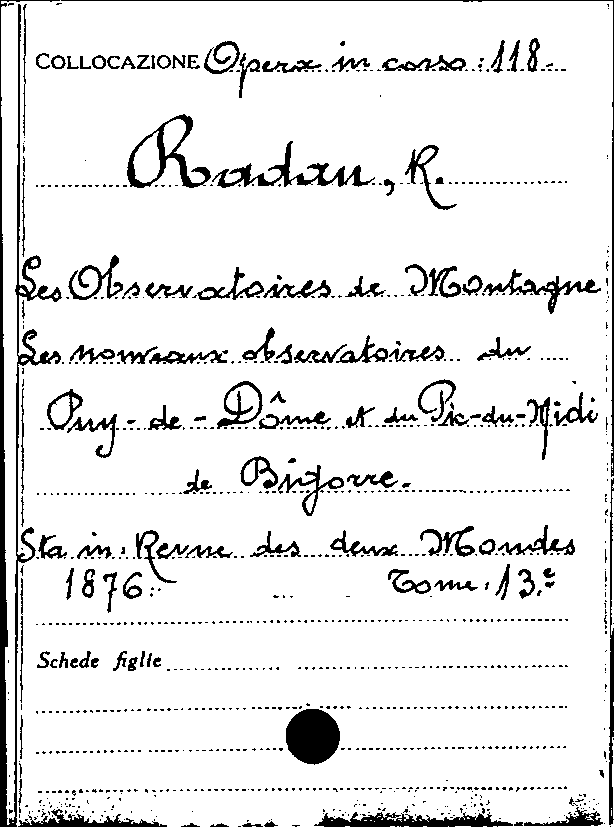 COLLOCAZIONE Opera in corso: 118.
Radau, R.
Les Observatoires de Montagne
Les nouveaux observatoires du
Puy-de-Dôme et du Pic-du-Midi
de Bigorre.
Sta in: Revue des deux Mondes
1876. Tome: 13.e
Schede figlie